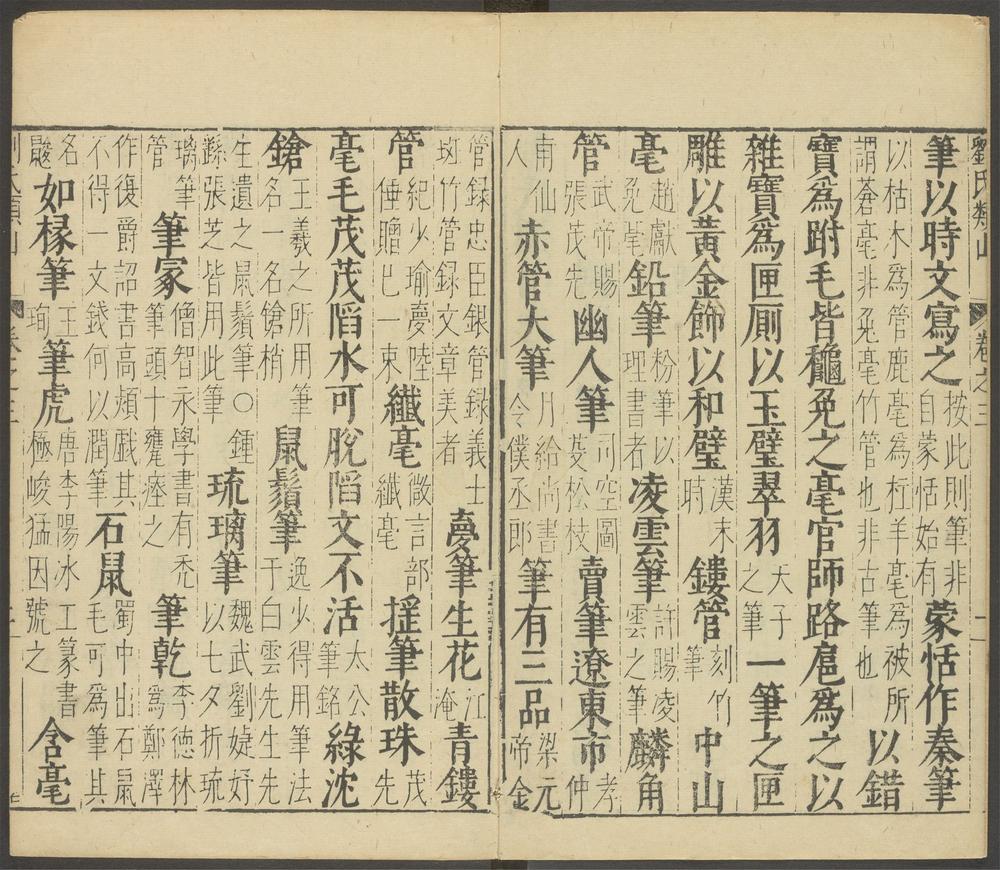 劉氏類山 卷之三
筆以時文寫之按此則筆非自蒙恬始有蒙恬作秦筆
以枯木爲管鹿毫爲柱羊毫爲被所謂蒼毫非兔毫竹管也非古筆也以錯
寶爲跗毛皆龝兔之毫官師路扈爲之以
雜寶爲匣厠以玉璧翠羽天子之筆一筆之匣
雕以黃金飾以和璧漢末時鏤管刻竹筆中山
毫趙獻兔毫鉛筆粉筆以理書者凌雲筆許賜凌雲之筆麟角
管武帝賜張茂先幽人筆司空圖芟松枝賣筆遼東市孝仲
南仙人赤管大筆月給尚書令僕丞郎筆有三品梁元帝金
管錄忠臣銀管錄義士班竹管錄文章美者夢筆生花江淹青鏤
管紀少瑜夢陸倕贈巳一束纖毫微言部纖毫搖筆散珠茂先
毫毛茂茂陷水可脫陷文不活太公筆銘綠沈
鎗王羲之所用筆名一名鎗梢鼠鬚筆逸少得用筆法于白雲先生先
生遺之鼠鬚筆〇鍾繇張芝皆用此筆琉璃筆魏武劉婕妤以七夕折琉
璃筆管筆冢僧智永學書有禿筆頭十甕瘞之筆乾李德林爲鄭澤
作復爵詔書高熲戲其不得一文錢何以潤筆石鼠蜀中出石鼠毛可爲筆其
名鼣如椽筆王珣筆虎唐李陽冰工篆書極峻猛因號之含毫